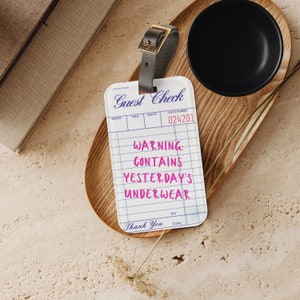 Guest Check
024201
WARNING:
CONTAINS
YESTERDAY'S
UNDERWEAR
Thank You